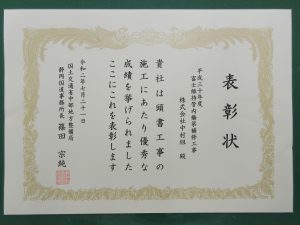 表彰状
平成三十年度
富士維持管内橋梁補修工事
株式会社中村組 殿
貴社は頭書工事の
施工にあたり優秀な
成績を挙げられました
ここにこれを表彰します
令和二年七月二十一日
国土交通省中部地方整備局
静岡国道事務所長 篠田 宗純